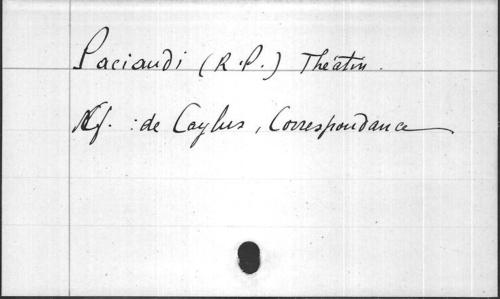 Paciaudi (R.P.) Théatin.
Cf. : de Caylus, Correspondance